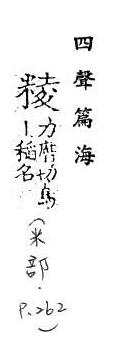 四聲篇海
力膺切馬
丨稻名
（米部．P.262）